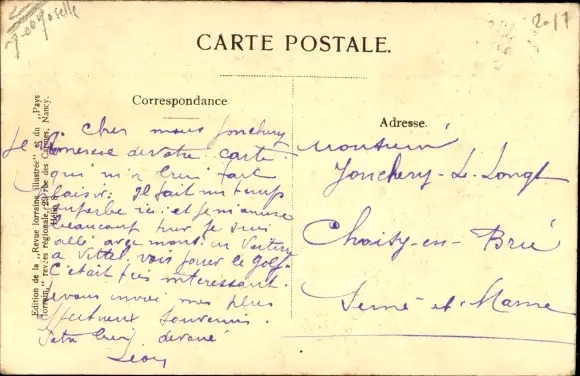 Moselle
2017
CARTE POSTALE.
Correspondance
Adresse.
Edition de la „Revue lorraine illustrée" et du „Pays
lorrain", revues régionales, 29 rue des Carmes, Nancy.
Cher Jonchery
Je remercie de votre carte
qui m'a fait
plaisir. Il fait un temps
superbe ici et je m'amuse
beaucoup hier je suis
allé avec mons. en voiture
à Vittel voir jouer le golf.
C'était très intéressant.
Je vous envoi mes plus
affectueux souvenirs.
Votre bien dévoué
Léon
Monsieur
Jonchery-L. Longt
Choisy-en-Brie
Seine et Marne